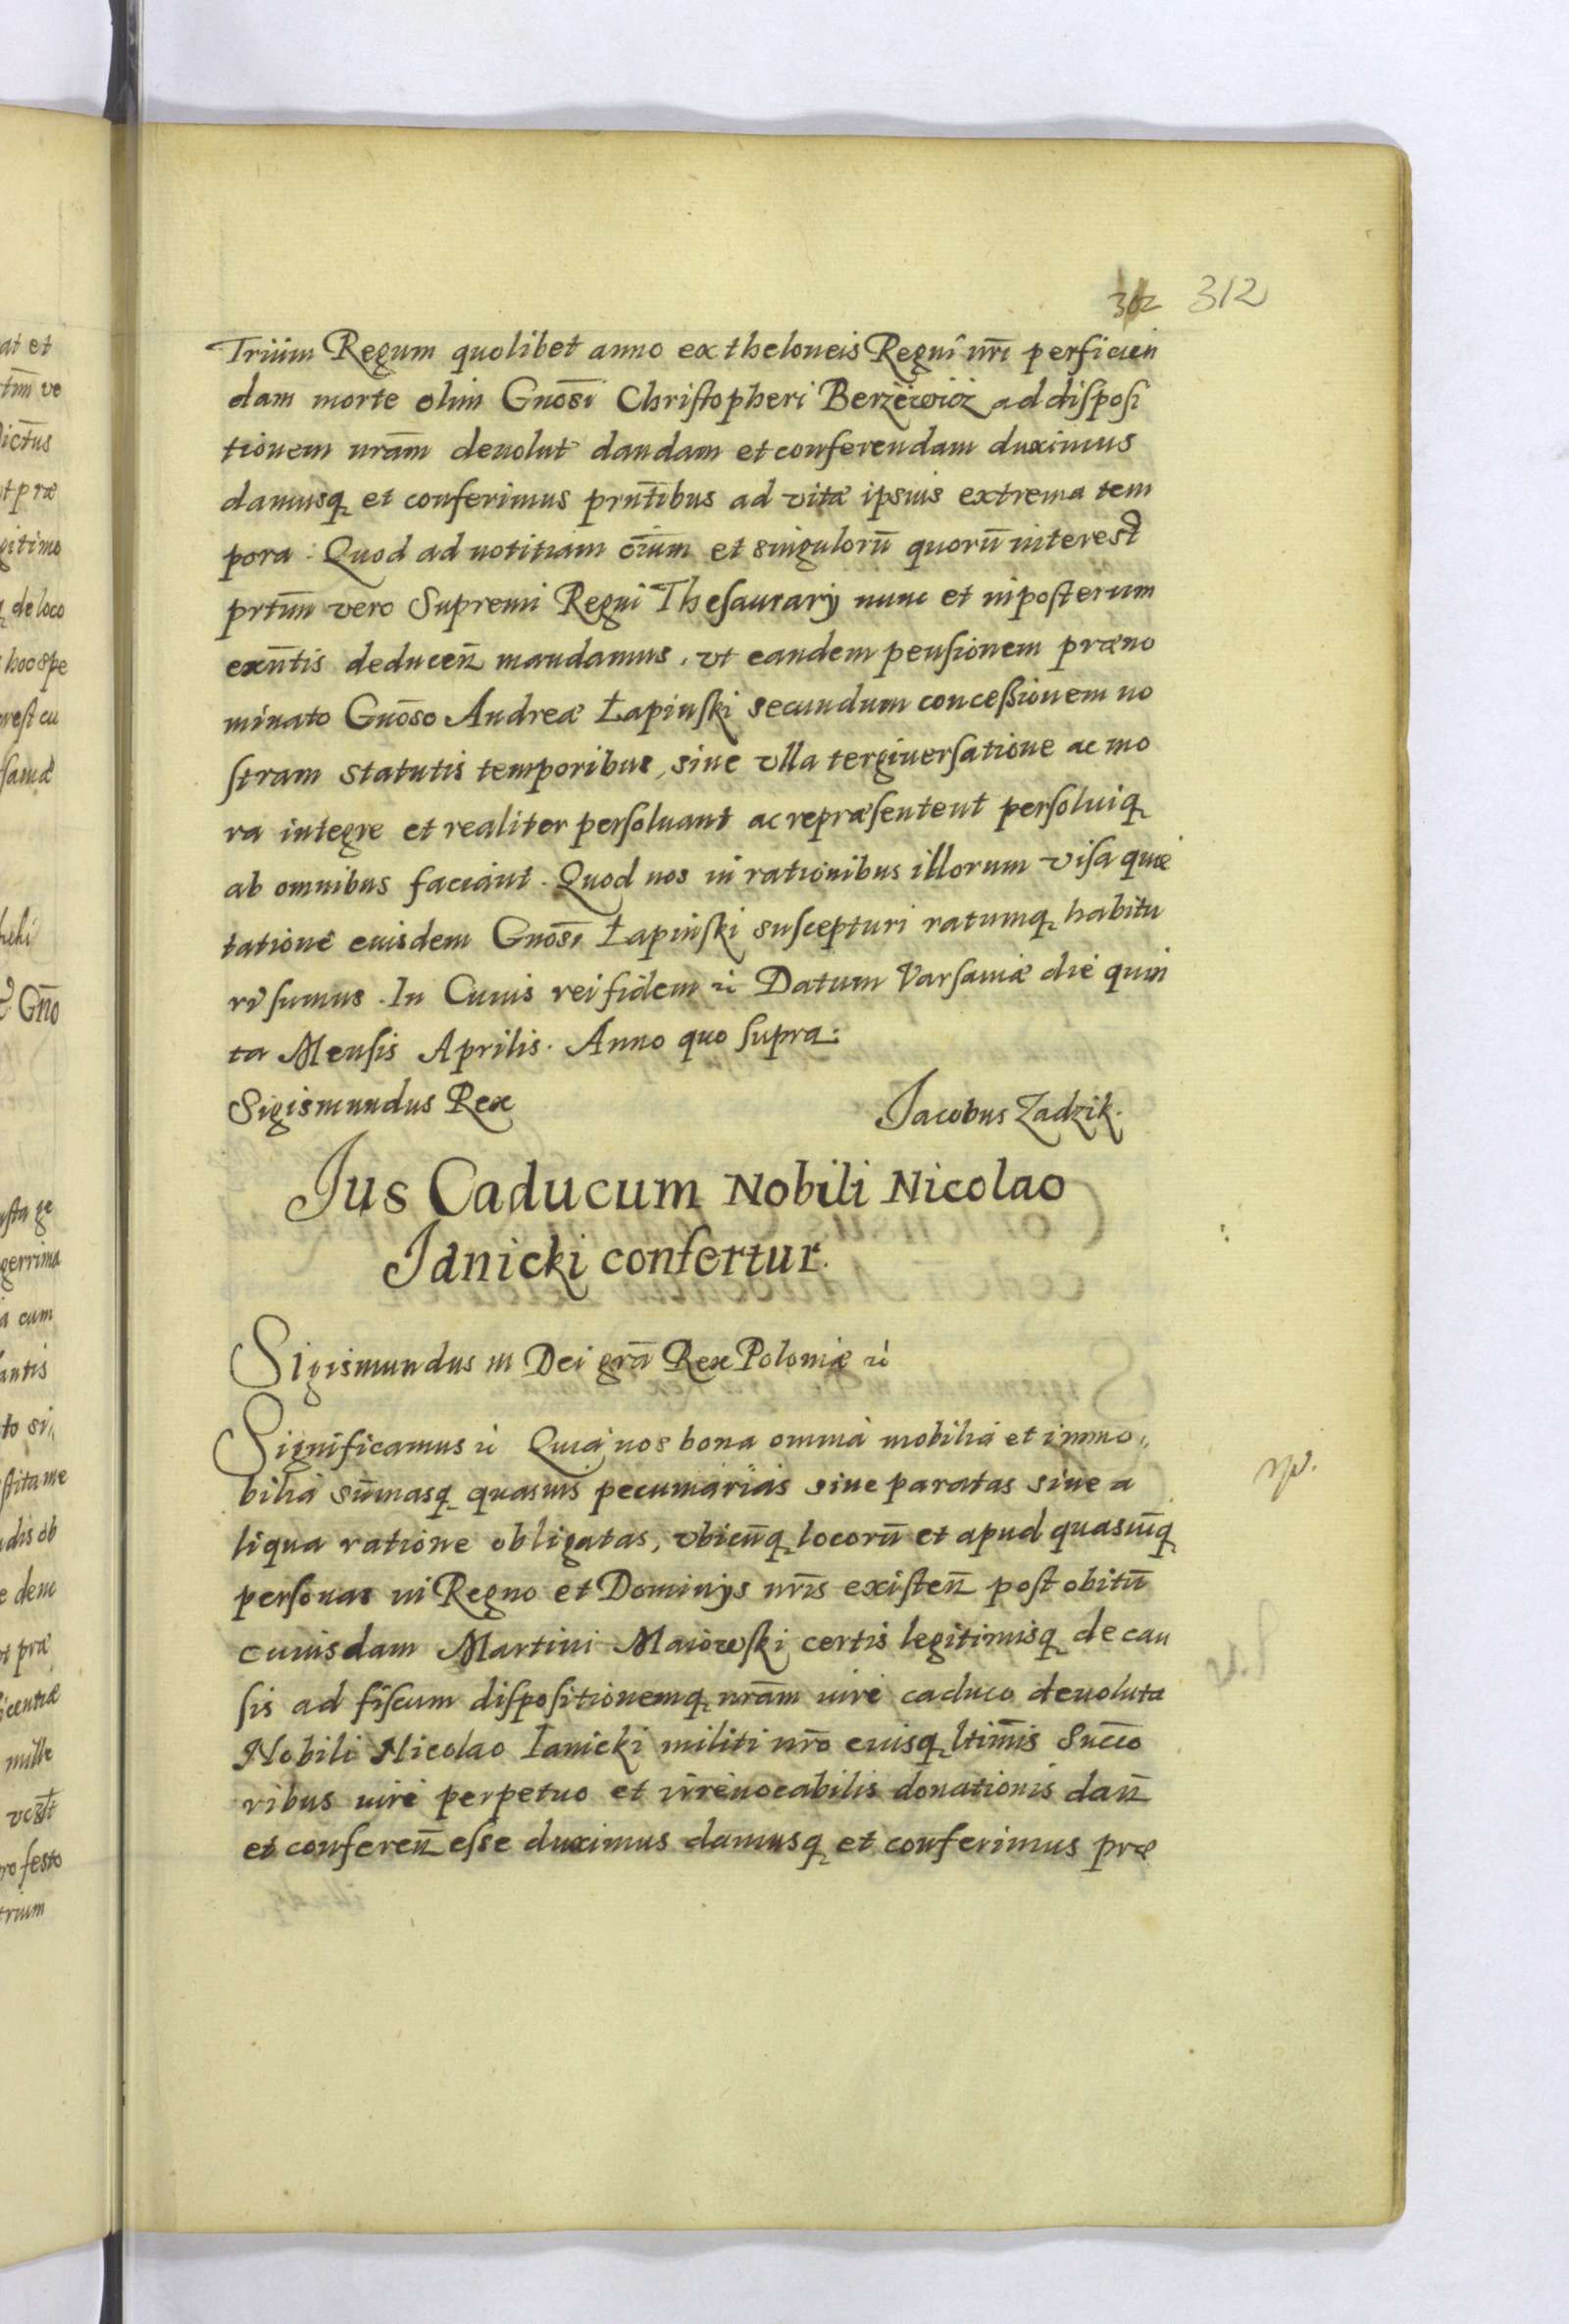 302 312
Trium Regum quolibet anno ex theloneis Regni nr̄i perficien
dam morte olim Gnōsi Christopheri Berzewicz ad disposi
tionem nrām deuolut dandam et conferendam duximus
damusq et conferimus prn̄tibus ad vitæ ipsius extrema tem
pora. Quod ad notitiam oīum et singulorū quorū interest
prtīm vero Supremi Regni Thesaurarij nunc et inposterum
exn̄tis deducen̄ mandamus, vt eandem pensionem præno
minato Gnōso Andreæ Łapinski secundum concessionem no
stram statutis temporibus, sine vlla tergiuersatione ac mo
ra integre et realiter persoluant ac repræsentent persoluiq
ab omnibus faciant. Quod nos in rationibus illorum visa quie
tatione eiusdem Gnōsi Łapinski suscepturi ratumq habitu
ri sumus. In Cuius rei fidem etc Datum Varsauiæ die quin
ta Mensis Aprilis. Anno quo supra.
Sigismundus Rex Jacobus Zadzik.
Jus Caducum Nobili Nicolao
Janicki confertur.
Sigismundus III Dei grā Rex Poloniæ etc
Significamus etc Quia nos bona omnia mobilia et immo
bilia sūmasq quasuis pecuniarias siue paratas siue a
liqua ratione obligatas, vbicūq locorū et apud quasuīq
personas in Regno et Dominijs nr̄is existen̄ post obitū
cuiusdam Martini Maiowski certis legitimisq de cau
sis ad fiscum dispositionemq nrām iure caduco deuoluta
Nobili Nicolao Ianicki militi nr̄o eiusq ltimīs Succō
ribus iure perpetuo et irreuocabilis donationis dan̄
et conferen̄ esse duximus damusq et conferimus præ